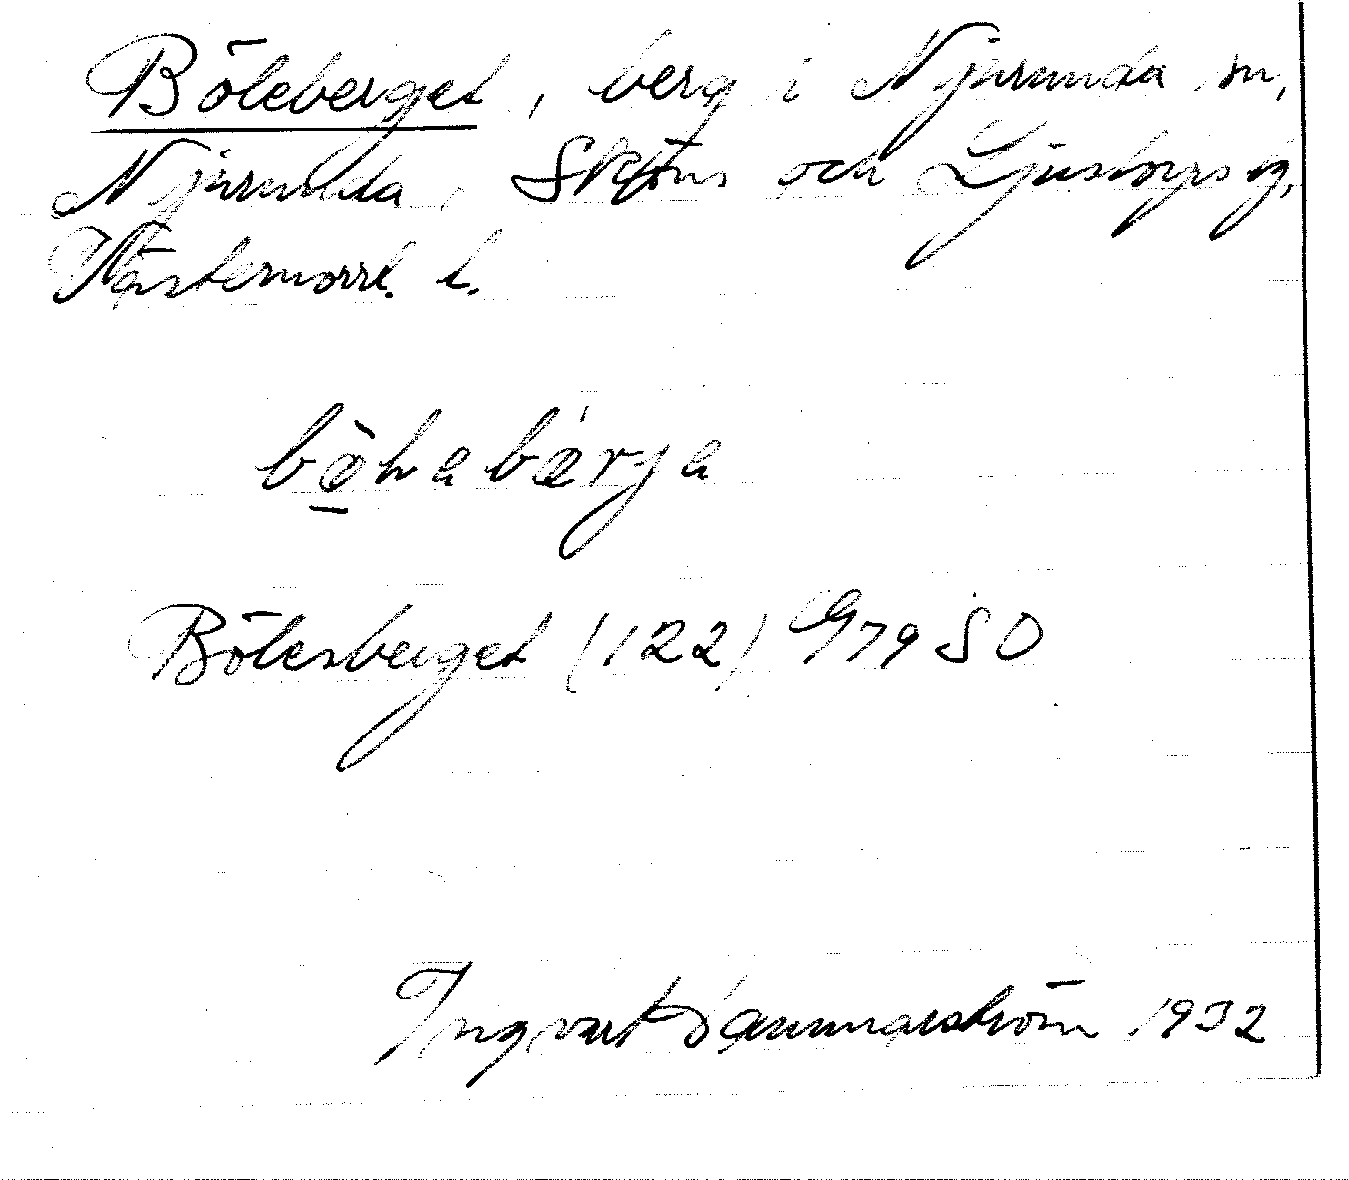 Böleberget, berg i Njurunda sn,
Njurunda, Sköns och Ljustorps tg,
Västernorrl. l.
Bölesberget (122) G79SO
Ingvart Hammarström 1932